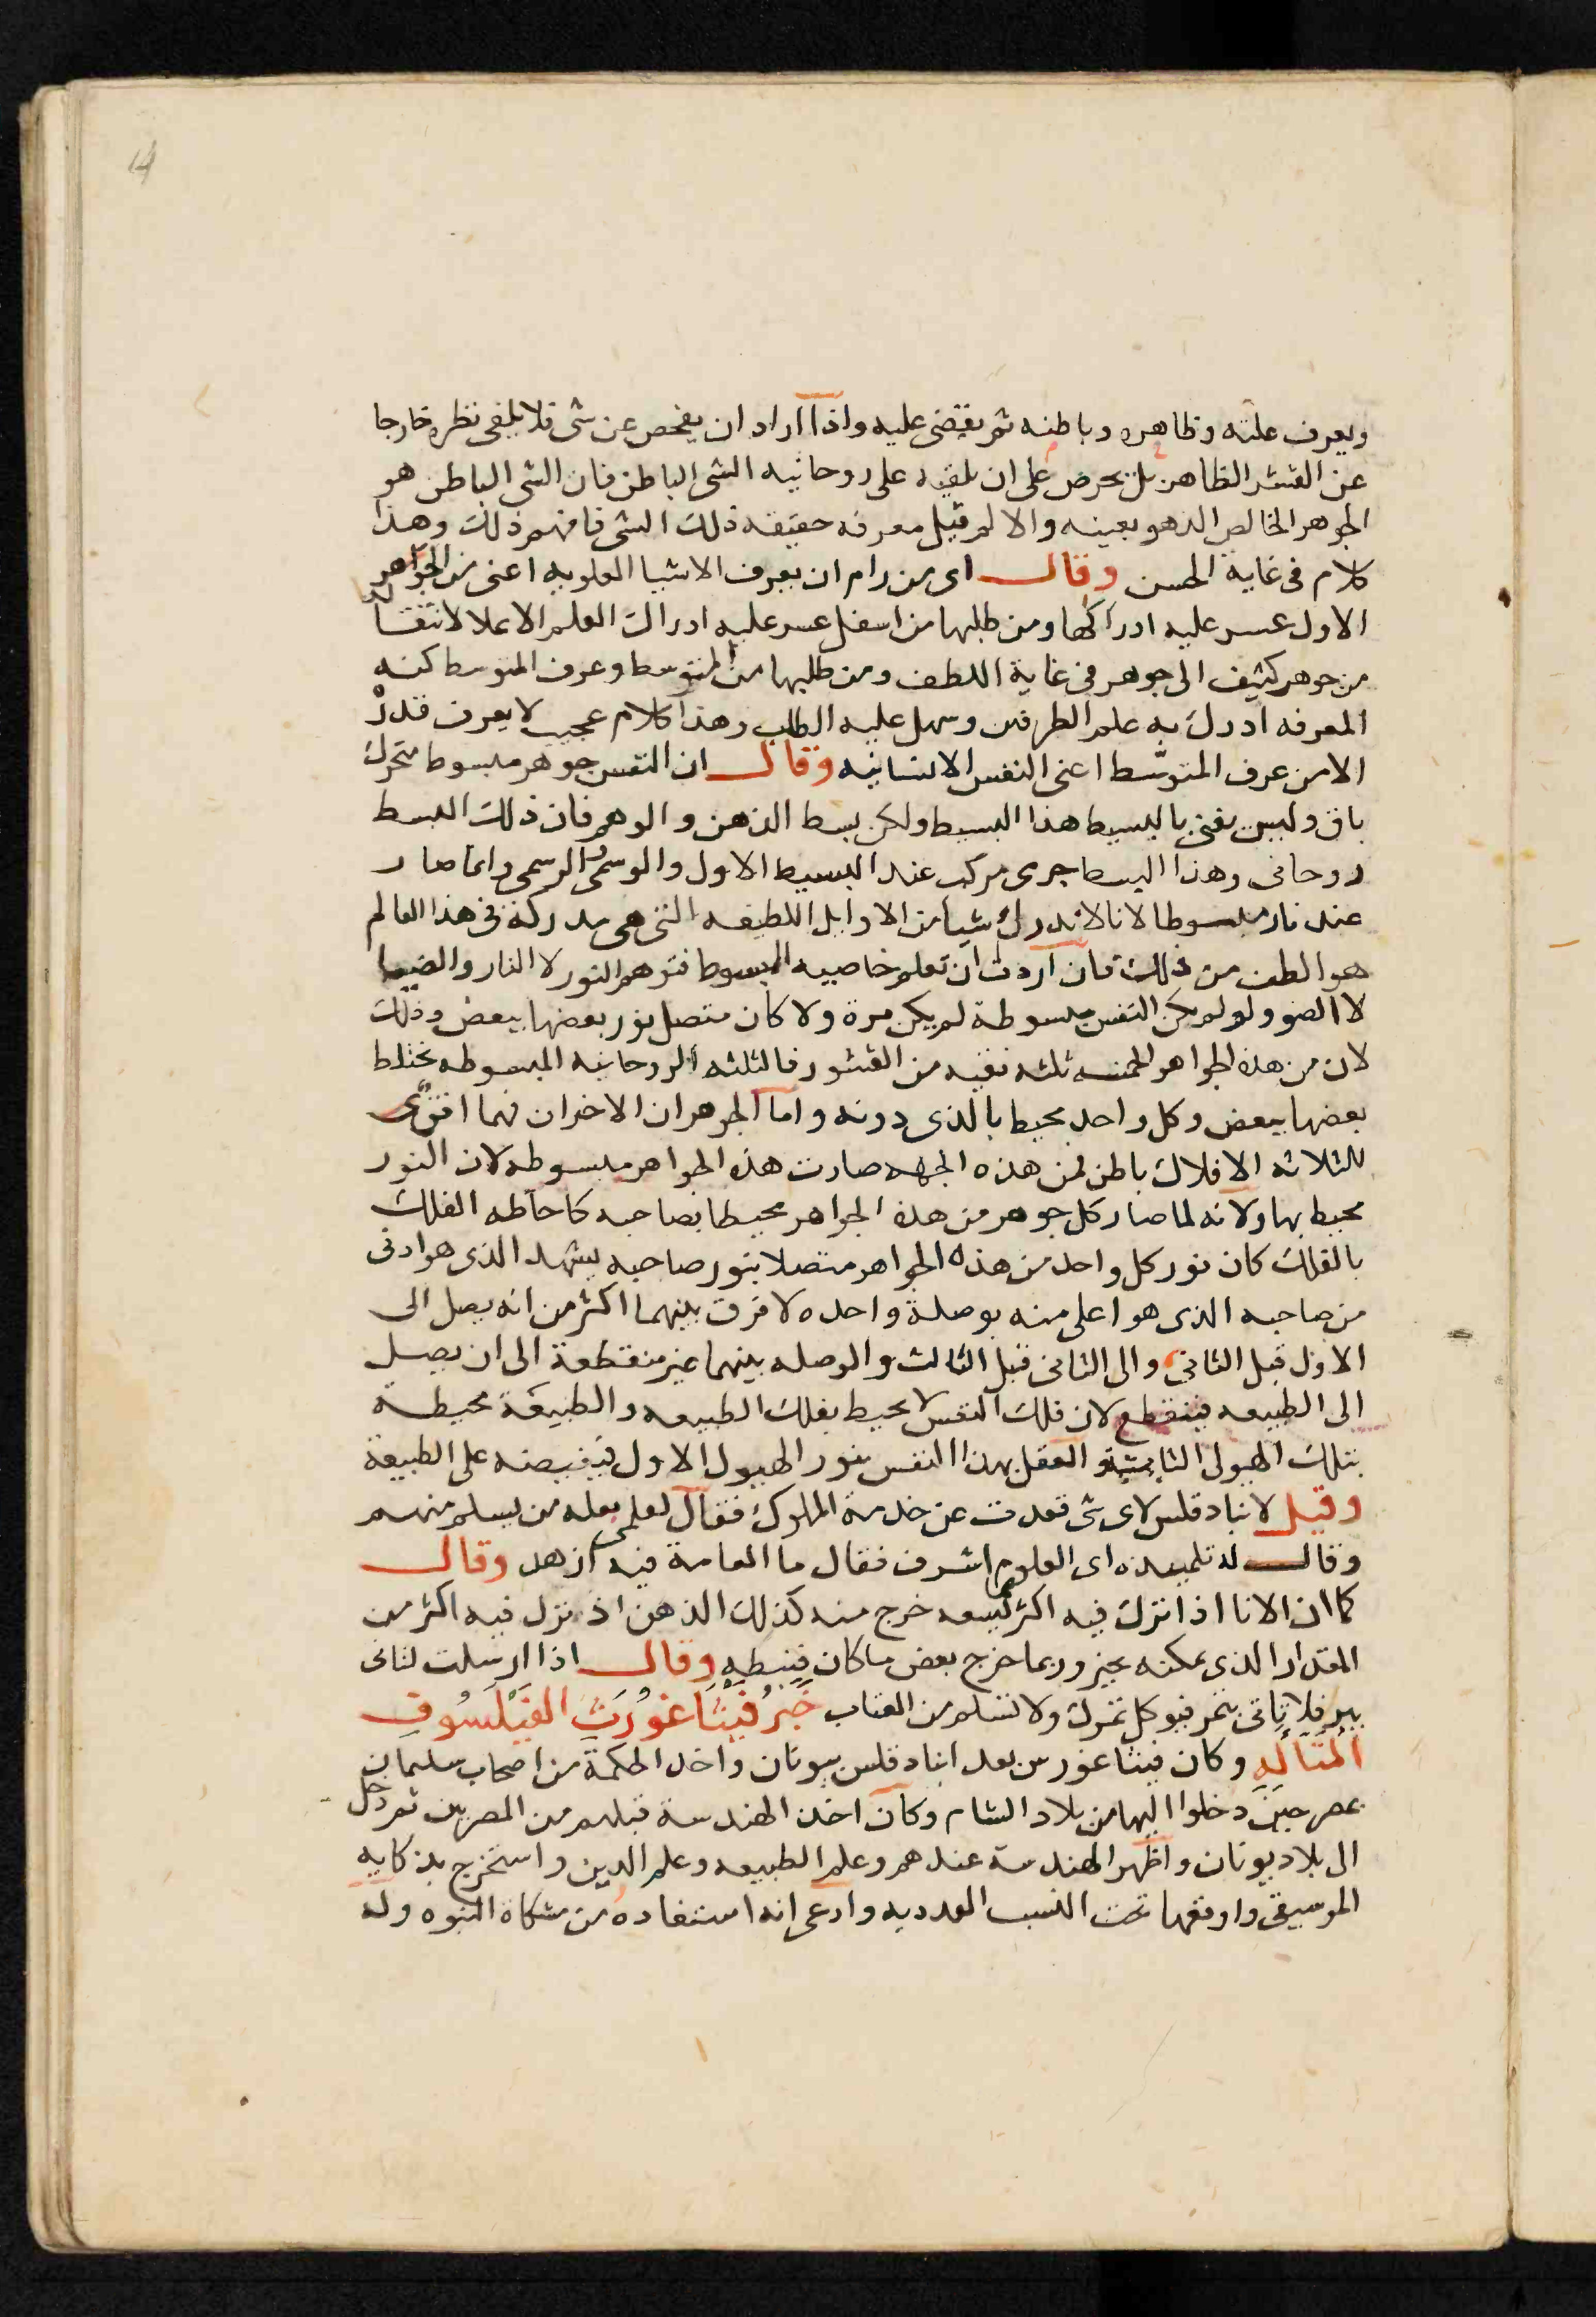 14
ويعرف علته وظاهره وباطنه ثم يقضى عليه واذا اراد ان يفحص عن شى فلا يلقى نظره خارجا
عن القشر الظاهر بل يحرص على ان يلقيه على روحانيه الشى الباطن فان الشى الباطن هو
الجوهر الخالص الذ هو بعينه والا لم قيل معرفه حقيقه ذلك الشى فافهم ذلك وهذا
كلام فى غاية الحسن وقال اى من رام ان يعرف الاشيا العلويه اعنى من الجواهر
الاول عسر عليه ادراكها ومن طلبها من اسفل عسر عليه ادراك العلم الاعلا لانتقاله
من جوهر كثيف الى جوهر فى غاية اللطف ومن طلبها من المتوسط وعرف المتوسط كنه
المعرفه ادرك به علم الطرفين وسهل عليه الطلب وهذا كلام عجيب لا يعرف قدره
الا من عرف المتوسط اعنى النفس الانسانيه وقال ان النفس جوهر مبسوط متحرك
باق وليس يعنى بالبسيط هذا البسيط ولكن بسط الذهن والوهم فان ذلك البسط
روحانى وهذا البسط جرى مركب عند البسيط الاول والوسمى الرسمى وانما صار
عندنا مبسوطا لانا لا ندرك شيا من الاوايل اللطيفه التى هى مدركة فى هذا العالم
هو الطف من ذلك فان اردت ان تعلم خاصيه المبسوط فتوهم النور لا النار والضيا
لا الضو ولو لم يكن النفس مبسوطة لم يكن مرة ولا كان متصل نور بعضها ببعض وذلك
لان من هذه الجواهر الخمسه ثلثه نقيه من القشور فالثلثه الروحانيه المبسوطه يختلط
بعضها ببعض وكل واحد محيط بالذى دونه واما الجوهران الاخران فهما
للثلاثه الافلاك باطن لمن هذه الجهه صارت هذه الجواهر مبسوطه لان النور
محيط بها ولانه لما صار كل جوهر من هذه الجواهر محيطا بصاحبه كاحاطه الفلك
بالفلك كان نور كل واحد من هذه الجواهر متصلا بنور صاحبه يشهد الذى هو ادنى
من صاحبه الذى هو اعلى منه بوصلة واحده لا فرق بينهما اكثر من انه يصل الى
الاول قبل الثانى والى الثانى قبل الثالث والوصله بينهما غير منقطعة الى ان يصل
الى الطبيعه فينقطع لان فلك النفس لا يحيط بفلك الطبيعه والطبيعة محيطة
بتلك الهيولى الثابتة والعقل بهذا النفس بنور الهيولى الاول فيفيضه على الطبيعة
وقيل لانبادقلس لاى شى قعدت عن خدمة الملوك فقال لعلمى بعله من يسلم منهم
وقال له تلميذه اى العلوم اشرف فقال ما العامة فيه ازهد وقال
كما ان الانا اذا نزل فيه اكثر مما يسعه خرج منه كذلك الذهن اذ نزل فيه اكثر من
المقدار الذى يمكنه تحيز وربما خرج بعض ما كان فيضبطه وقال اذا ارسلت لتاتى
ببر فلا تاتى بتمر فيوكل تمرك ولا تسلم من العتاب خبر فيثاغورث الفيلسوف
المتاله وكان فيثاغورس بعد انبادقلس بيونان واخذ الحكمة من اصحاب سليمان
بمصر حين دخلوا اليها من بلاد الشام وكان اخذ الهندسة قبلهم من المصريين ثم رحل
الى بلاد يونان واظهر الهندسة عندهم وعلم الطبيعه وعلم الدين واستخرج بذكايه
الموسيقى واوقعها تحت النسب العدديه وادعى انه استفاده من مشكاة النبوه وله